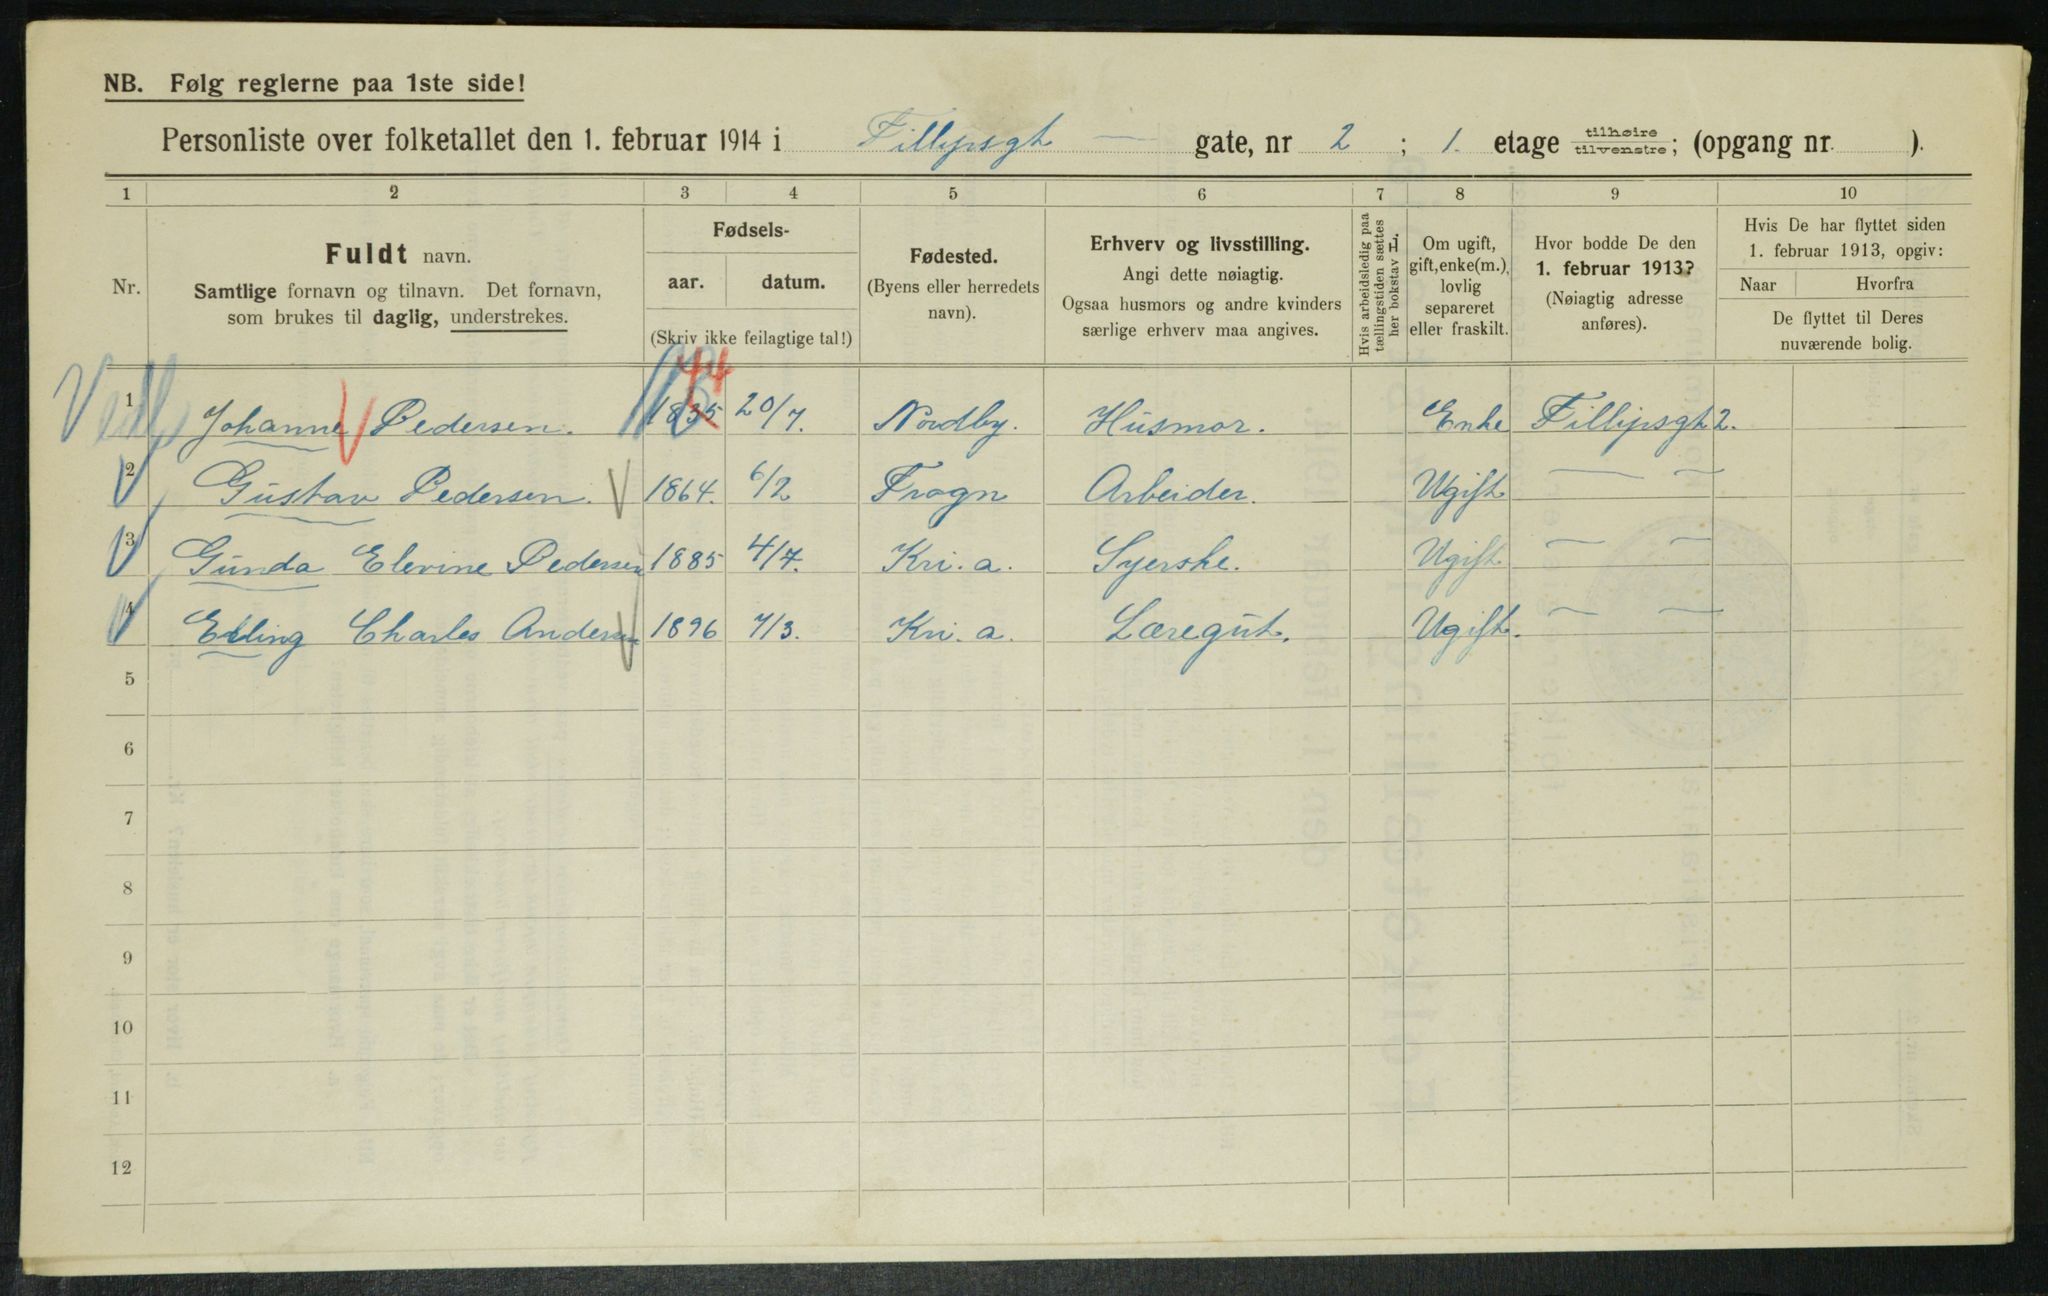 NB. Følg reglerne paa 1ste side!
Personliste over folketallet den 1. februar 1914 i Fillipsgt — gate, nr 2 ; 1. etage tilhøire tilvenstre ; (opgang nr. ).
1 2 3 4 5 6 7 8 9 10
Nr.
Fuldt navn.
Samtlige fornavn og tilnavn. Det fornavn,
som brukes til daglig, understrekes.
Fødsels-
aar. datum.
(Skriv ikke feilagtige tal!)
Fødested.
(Byens eller herredets
navn).
Erhverv og livsstilling.
Angi dette nøiagtig.
Ogsaa husmors og andre kvinders
særlige erhverv maa angives.
Hvis arbeidsledig paa
tællingstiden sættes
her bokstav L.
Om ugift,
gift, enke(m.),
lovlig
separeret
eller fraskilt.
Hvor bodde De den
1. februar 1913?
(Nøiagtig adresse
anføres).
Hvis De har flyttet siden
1. februar 1913, opgiv:
Naar Hvorfra
De flyttet til Deres
nuværende bolig.
44
1 Johanne Pedersen. 1835 20/7. Nordby. Husmor. Enke Fillipsgt 2.
2 Gustav Pedersen. 1864. 6/2 Frogn Arbeider. Ugift — —
3 Gunda Elevine Pedersen 1885 4/7. Kri.a. Syerske. Ugift — —
4 Erling Charles Andersen 1896 7/3. Kri.a. Læregut. Ugift. — —
5
6
7
8
9
10
11
12